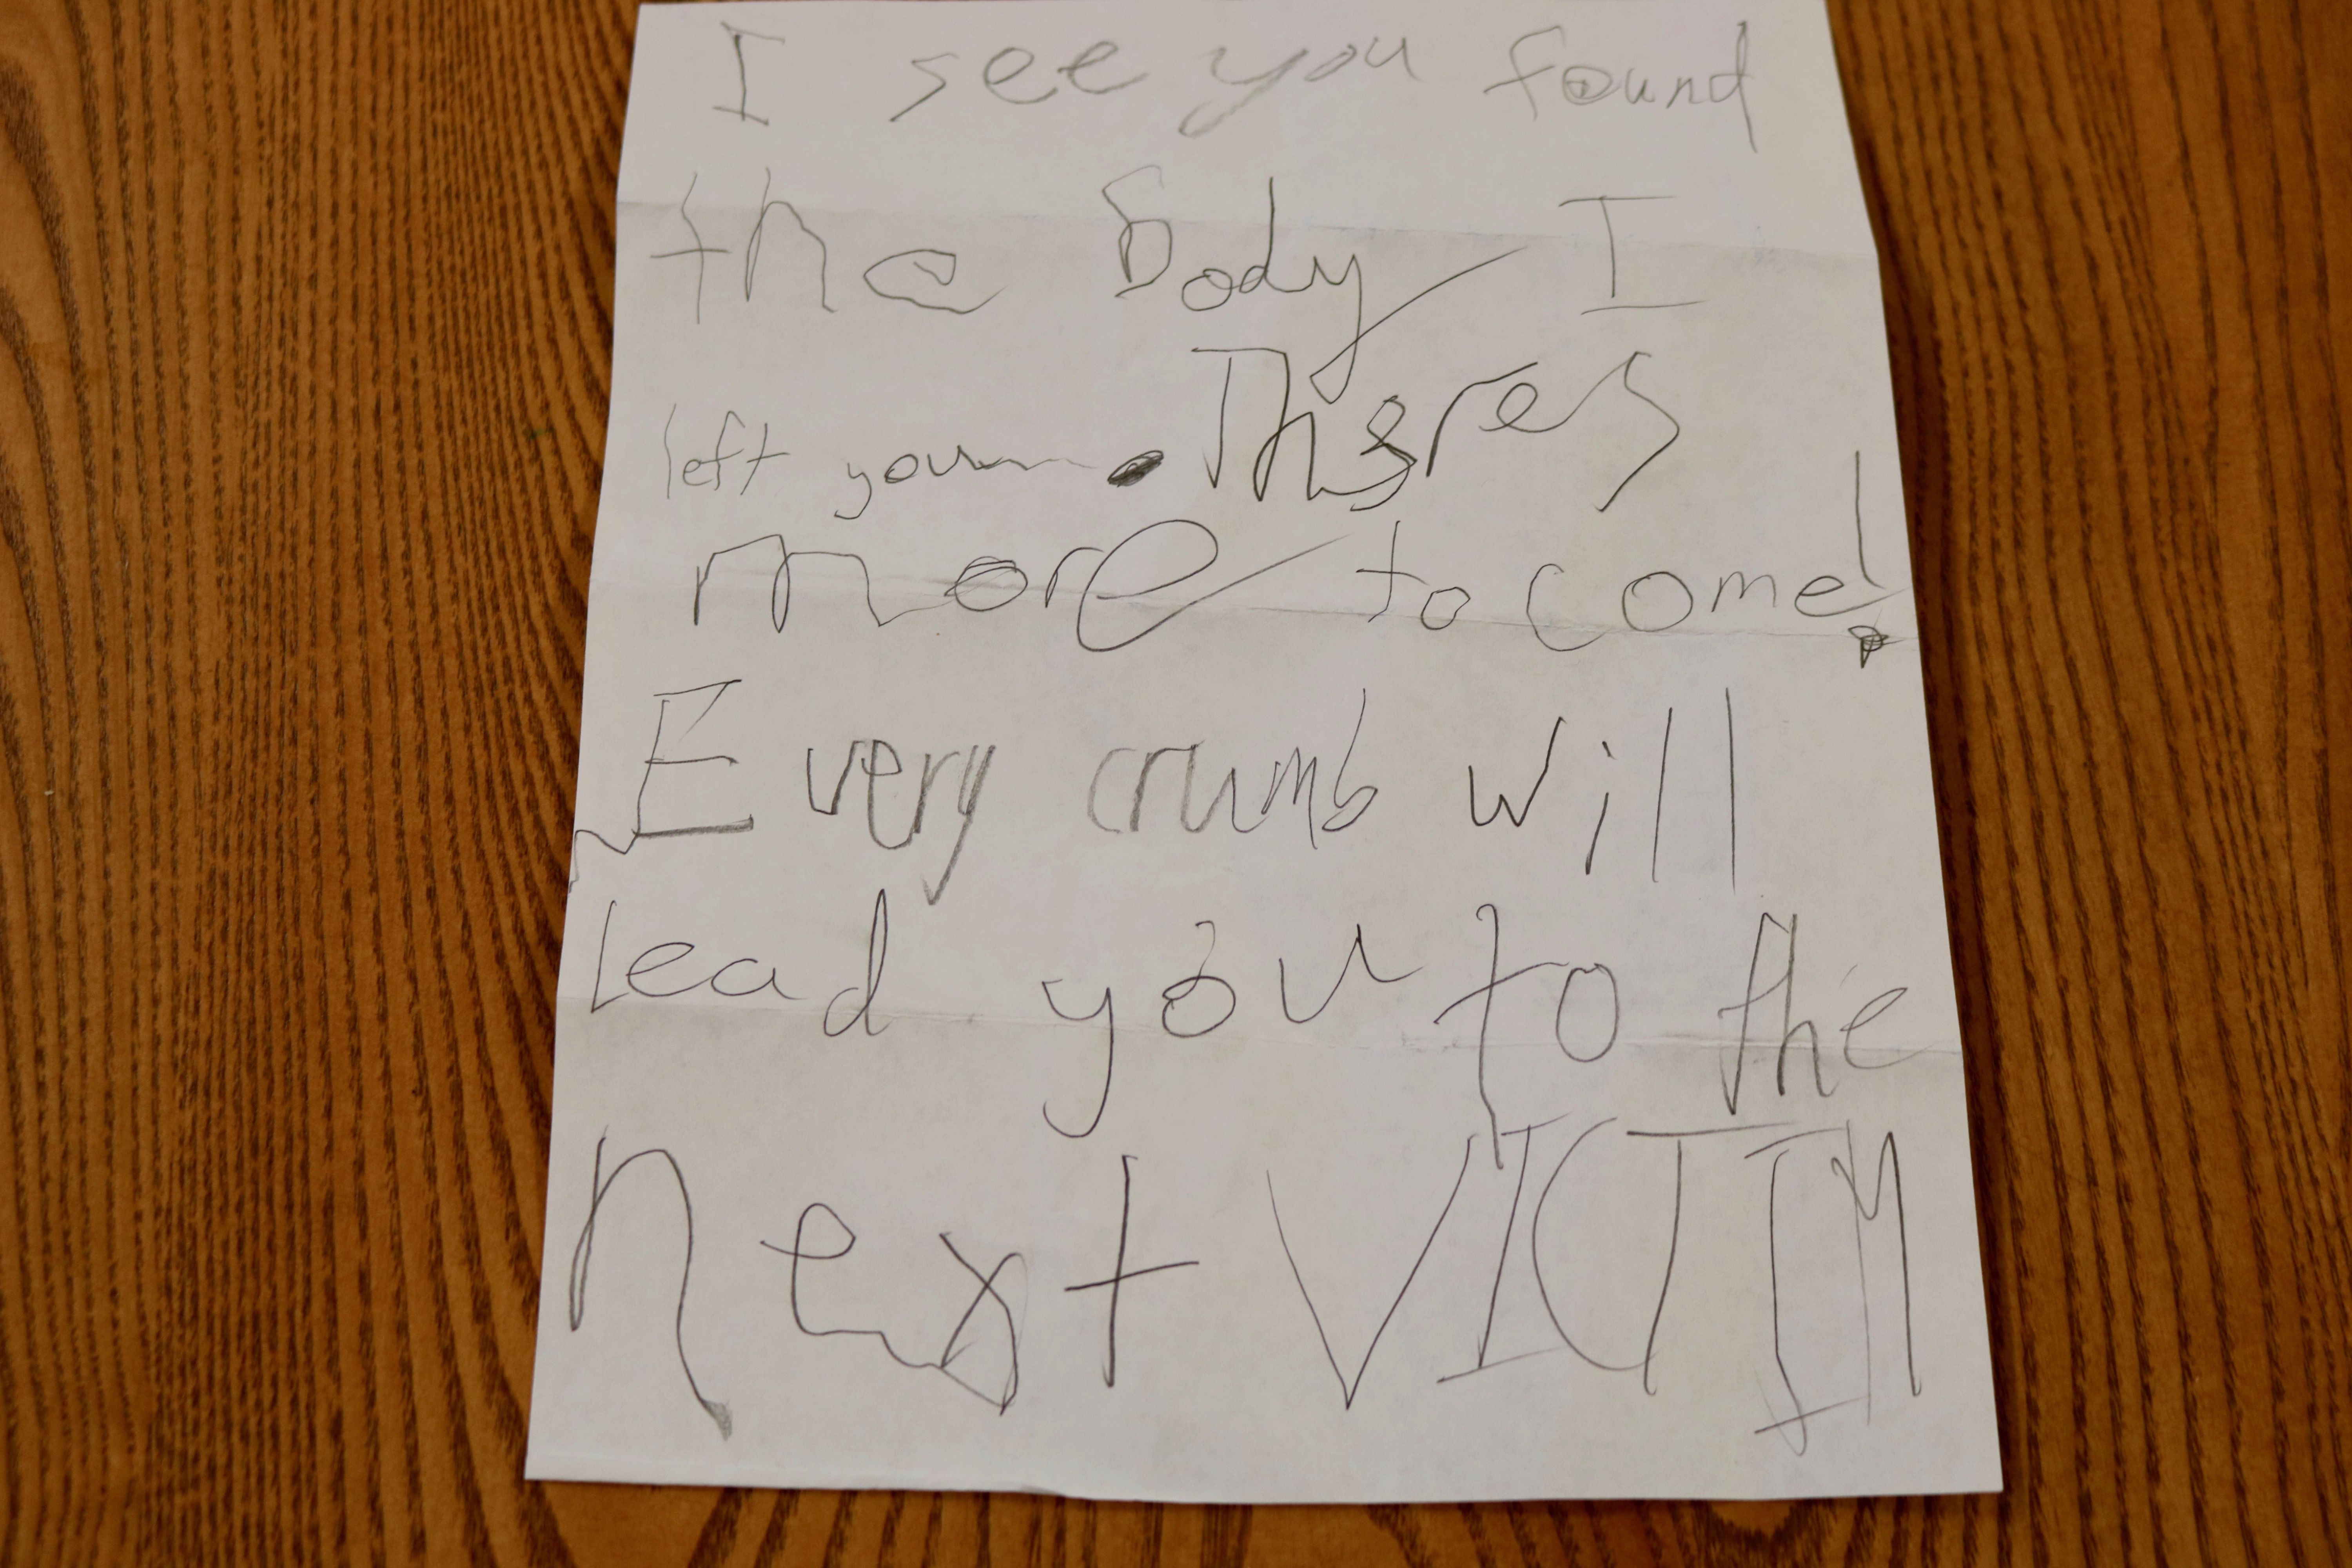 I see you found
the body I
left you. Theres
more to come!
Every crumb will
lead you to the
next VICTIM